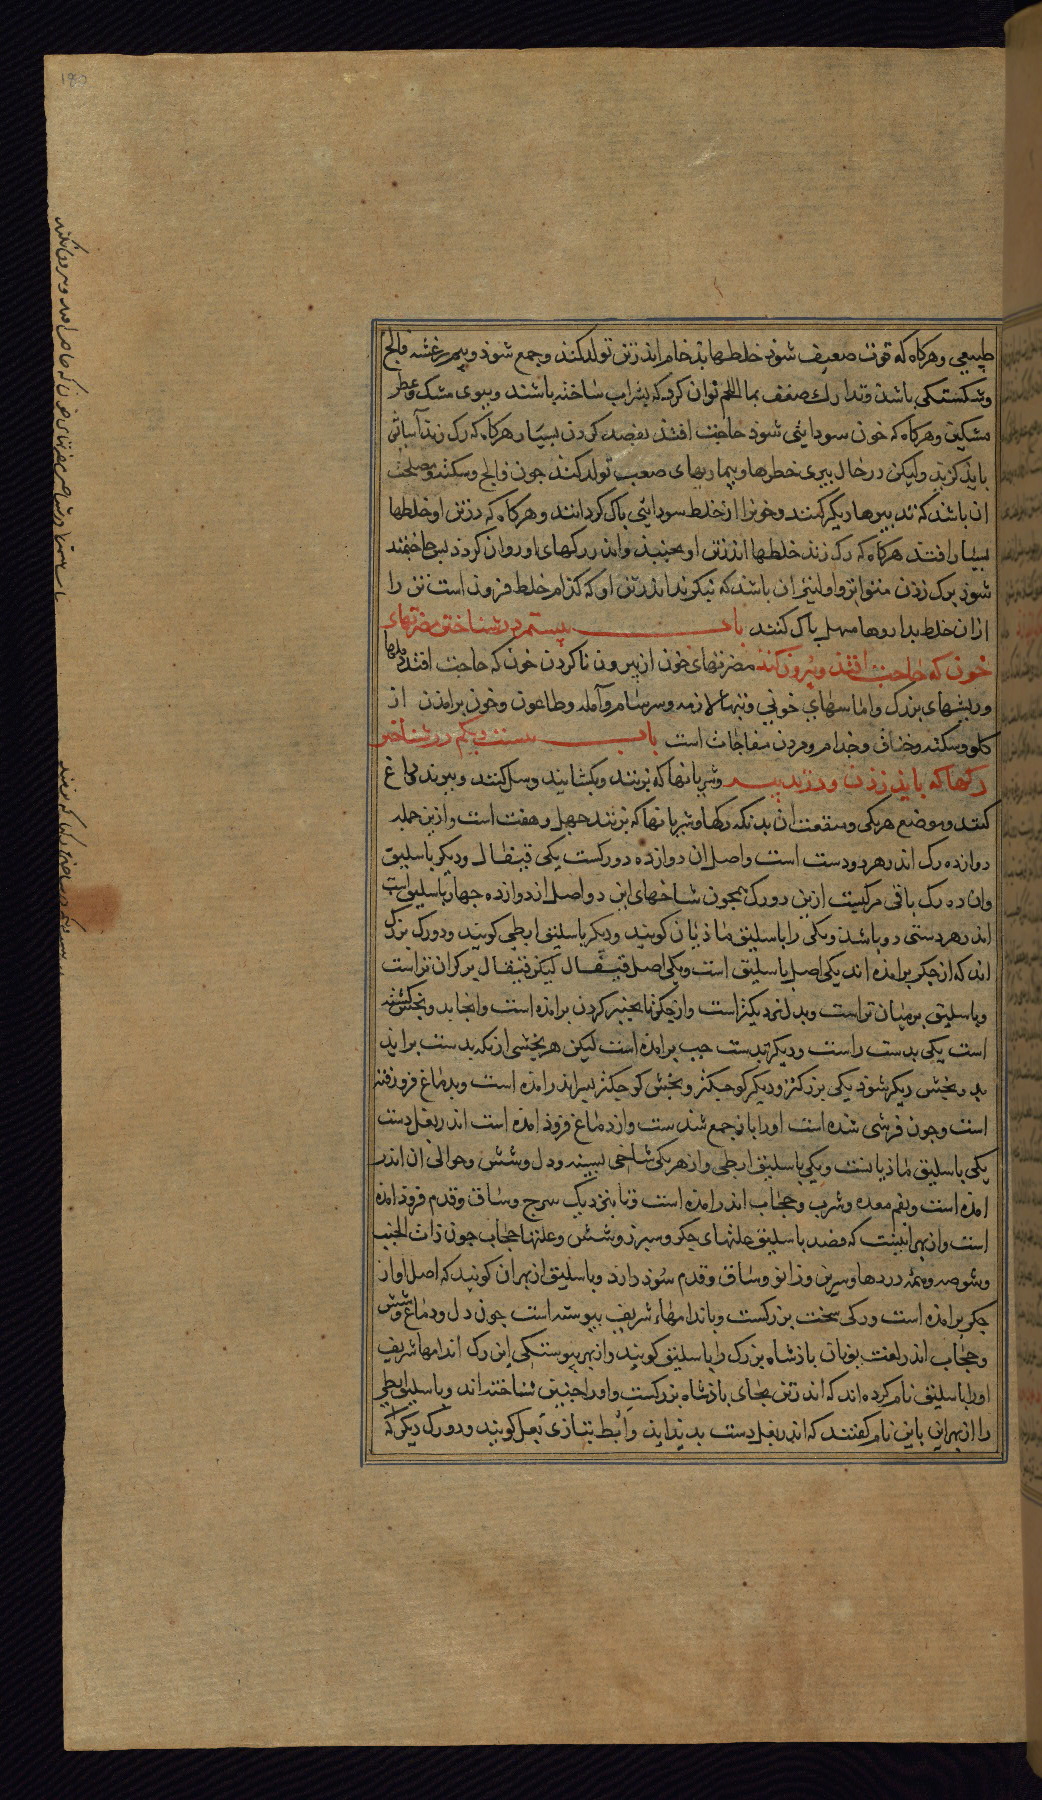 طبیعی و هرکاه که قوت ضعیف شوذ خلطها بذ خام اندر تن تولد کند و جمع شوذ و بیم رعشه و فالج
و شکستکی باشذ و تدارک ضعف بما اللحم توان کرد که بشراب ساخته باشند و ببوی مشک و عطر
مشکین و هرکاه که خون سودایی شوذ حاجت افتد بفصد کردن بسیار هرکاه که رک زند آسانی
بایذ کزید ولیکن در حال پیری خطرها و بیماریهای صعب تولد کند جون فالج و سکته و مصلحت
ان باشد که تدبیرها دیکر کنند و خونرا از خلط سودایی پاک کردانند و هرکاه که در تن او خلطها
بسیار افتد هرکاه که رک زند خلطها اندر تن او بجنبذ و اندر رکهای او روان کردد پس حاجتمند
شوذ برک زدن متواتر و اولیتر ان باشذ که نیکو بداند که اندر تن او کدام خلط فزون است تن را
از ان خلط بداروها مسهل پاک کنند باب بیستم در شناختن مضرتهای
خون که حاجت افتد و بیرون نکند مضرتهای خون از بیرون ناکردن خون که حاجت افتد دملها
و ریشهای بزرک و اماسهای خونی و تبهاء لازمه و سرسام و آمله و طاعون و خون برامدن از
کلو و سکته و خناق و خدام و مردن مفاجات است باب بیست و یکم در شناختن
رکها که باید زدن و زدند و شریانها که بزنند و بکشایند و سل کنند و ببرند و داغ
کنند و موضع هر یکی و منفعت ان بدانکه رکها و شریانها که بزنند جهل و هفت است و ازین جمله
دوازده رک اندر هر دو دست است و اصل ان دوازده دو رکست یکی قیفال و دیکر باسلیق
و ان ده رک باقی مرکبست ازین دو رک همجون شاخهای این دو اصل از دوازده جهار باسلیق است
اندر هر دستی دو باشد و یکی را باسلیق ماذیان کویند و دیکر باسلیق ابطی کویند و دو رک بزرک
اند که از جکر برامذه اند یکی اصل باسلیق است و یکی اصل قیفال لیکن قیفال بر کران تر است
و باسلیق بر میان تر است و بدل نزدیکتر است و از جکر تا بجنبر کردن برامذه است و انجا بدو بخش کشته
است یکی بدست راست و دیکر بدست جب برامذه است لیکن هر بخشی ازنکه بدست براید
بدو بخش دیکر شوذ یکی بزرکتر و دیکر کوجکتر و بخش کوجکتر بسر اندر امذه است و بدماغ فروزفته
است و جون فرشی شده است او را باز جمع شدست و از دماغ فروذ امذه است اندر بغل دست
یکی باسلیق ماذیانست و یکی باسلیق ابطی و از هر یکی شاخی بسینه و دل و شش و حوالی ان اندر
امذه است و بفم معده و شرب و حجاب اندر امذه است و تا بنزدیک سرج و ساق و قدم فروذ امذه
است و از بهر اینست که فصد باسلیق علتهای جکر و سپرز و شش و علتها حجاب جون ذات الجنب
و شوصه و همه دردها و سرین و زانو و ساق و قدم سوذ دارد و باسلیق از بهران کویند که اصل او از
جکر برامذه است و رکی سخت بزرکست و باندامهاء شریف پیوسته است جون دل و دماغ و شش
و حجاب اندر لغت یونان پاذشاه بزرک را باسلیق کویند و از بهر پیوستکی این رک اندامها شریف
او را باسلیق نام کرده اند که اندر تن بجای پاذشاه بزرکست و او را جنین شناخته اند و باسلیق ابطی
را از بهر این باین نام کفتند که اندر بغل دست بدید اید و ابط بتازی بغل کویند و دو رک دیکر که